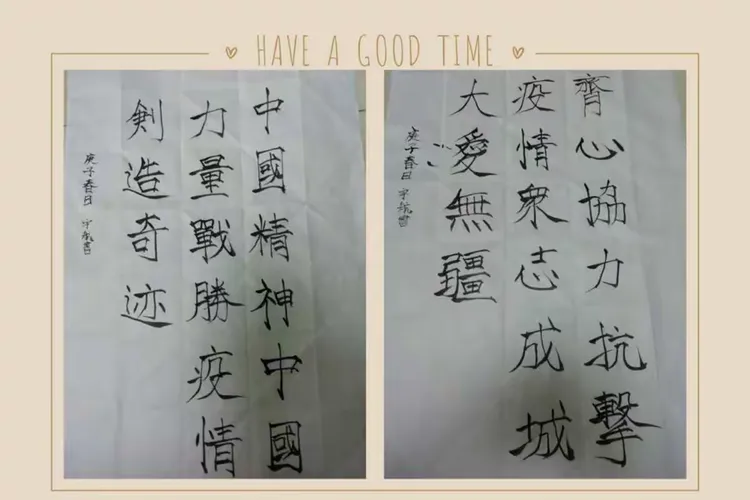 HAVE A GOOD TIME
中國精神中國
力量戰勝疫情
剙造奇迹
庚子春日 宇航書
齊心協力抗擊
疫情衆志成城
大愛無疆
庚子春日 宇航書